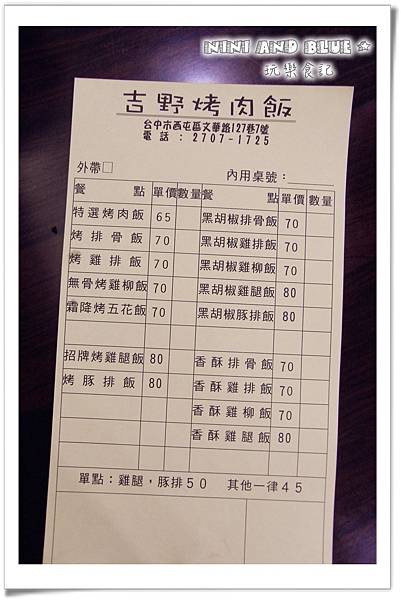 NINI AND BLUE
玩樂食記
吉野烤肉飯
台中市西屯區文華路127巷7號
電話：2707-1725
外帶□ 內用桌號：
餐 點 單價 數量 餐 點 單價 數量
特選烤肉飯 65 黑胡椒排骨飯 70
烤排骨飯 70 黑胡椒雞排飯 70
烤雞排飯 70 黑胡椒雞柳飯 70
無骨烤雞柳飯 70 黑胡椒雞腿飯 80
霜降烤五花飯 70 黑胡椒豚排飯 80
招牌烤雞腿飯 80 香酥排骨飯 70
烤豚排飯 80 香酥雞排飯 70
香酥雞柳飯 70
香酥雞腿飯 80
單點：雞腿，豚排50 其他一律45